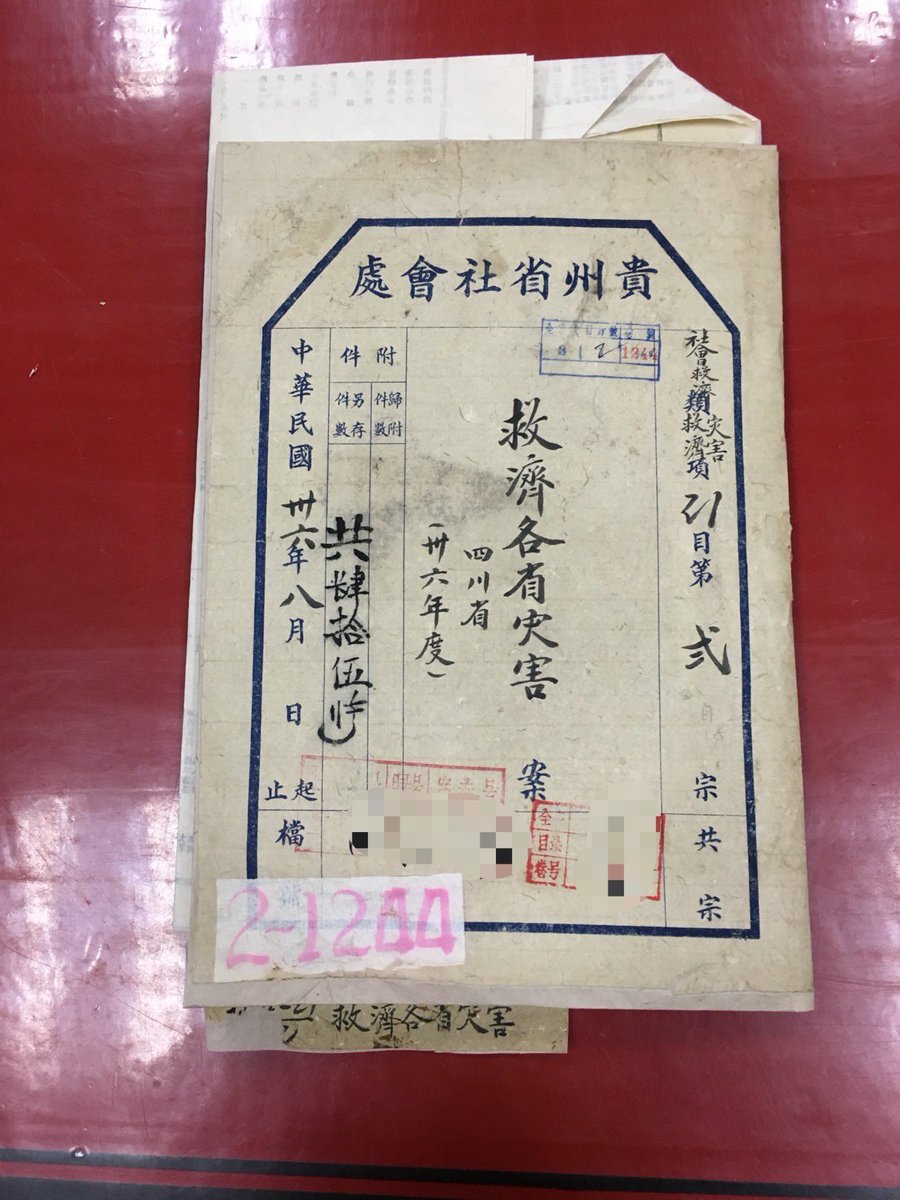 貴州省社會處
社會救濟類災害救濟項21目第弍宗共宗
1244
救濟各省灾害案
四川省
(卅六年度)
附件
歸附件數
另存件數
共肆拾伍件
中華民國卅六年八月日起止
檔號
全
目录
卷号
2-1244
救濟各省灾害